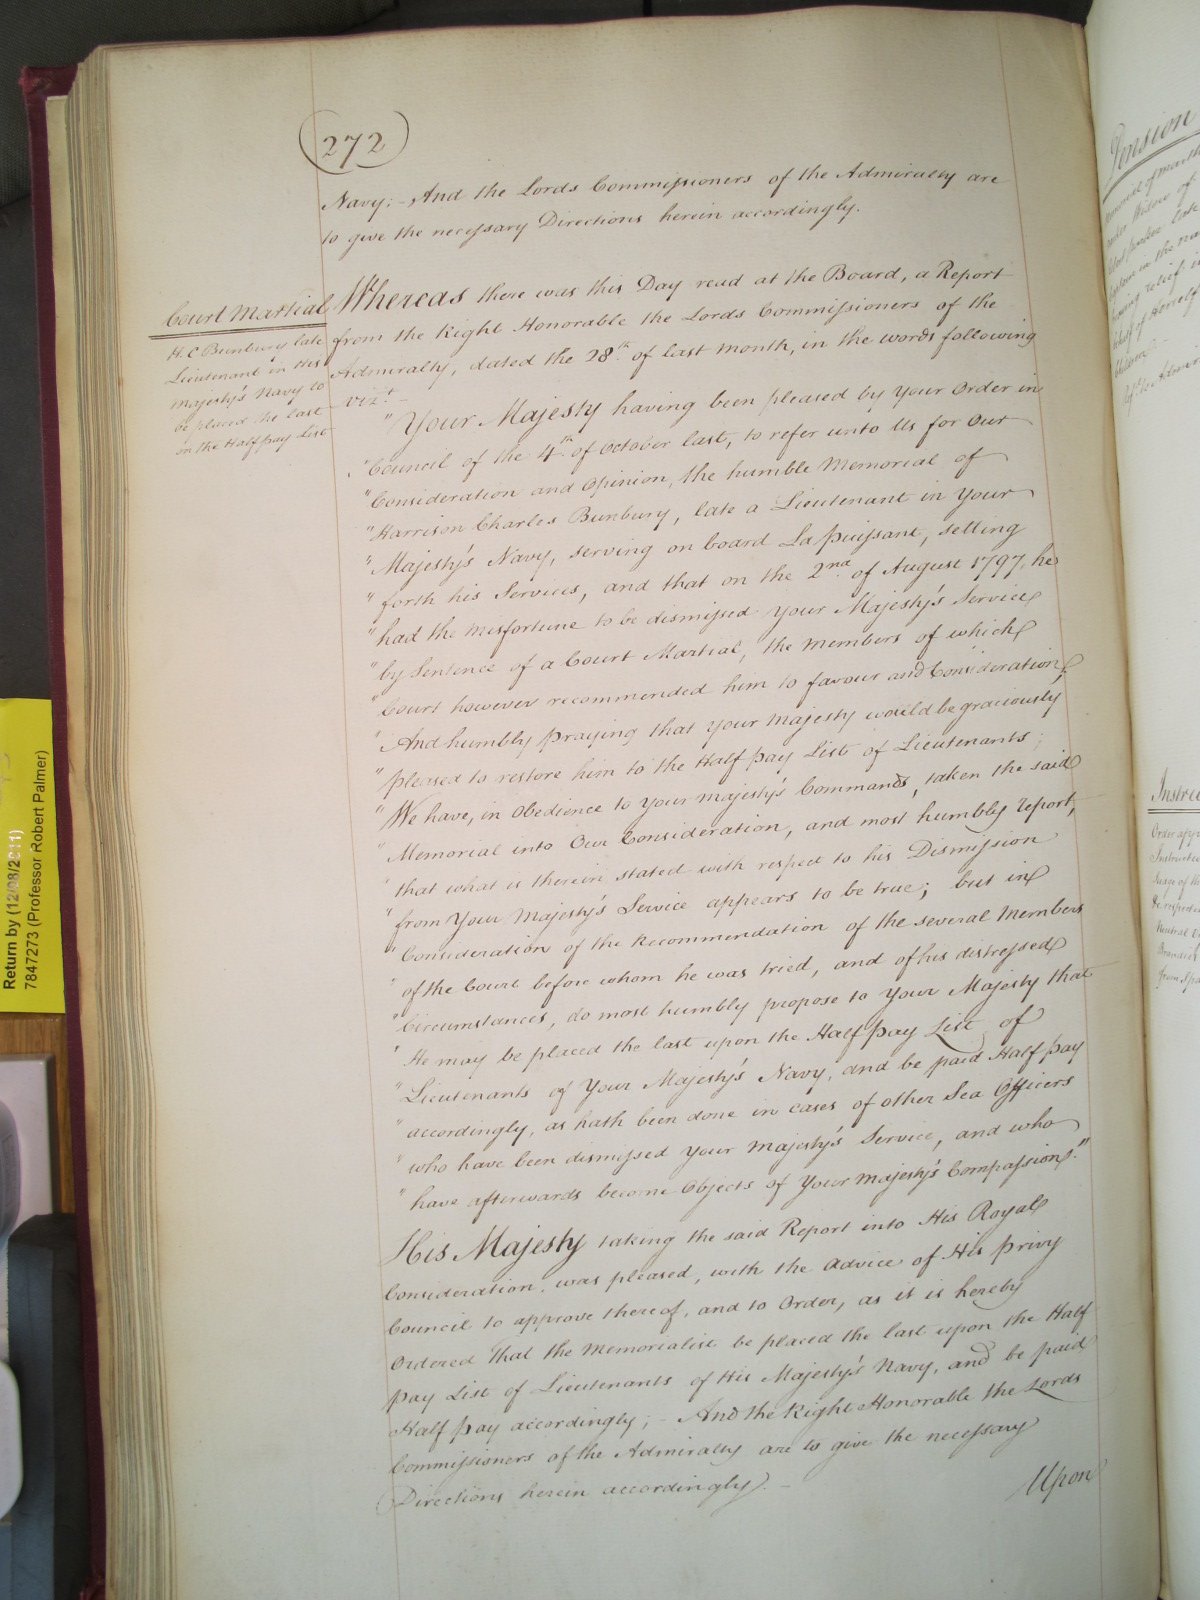 (272)
Navy; - And the Lords Commissioners of the Admiralty are
to give the necessary Directions herein accordingly.
Court Martial
H. C Bunbury late
Lieutenant in His
Majesty's Navy to
be placed the last
on the Half pay List
Whereas there was this Day read at the Board, a Report
from the Right Honorable the Lords Commissioners of the
Admiralty, dated the 28th. of last month, in the words following
vizt. -
"Your Majesty having been pleased by Your Order in
"Council of the 4th of October last, to refer unto Us for Our
"Consideration and Opinion, the humble Memorial of
"Harrison Charles Bunbury, late a Lieutenant in Your
"Majesty's Navy, serving on board La Puissant, setting
"forth his Services, and that on the 2nd. of August 1797, he
"had the misfortune to be dismissed Your Majesty's Service
"by Sentence of a Court Martial, the Members of which
"Court however recommended him to favour and Consideration,
"And humbly praying that Your Majesty would be graciously
"pleased to restore him to the Half pay List of Lieutenants;
"We have, in Obedience to Your Majesty's Commands, taken the said
"Memorial into Our Consideration, and most humbly report,
"that what is therein stated with respect to his Dismission
"from Your Majesty's Service appears to be true; but in
"Consideration of the Recommendation of the several Members
"of the Court before whom he was tried, and of his distressed
"Circumstances, do most humbly propose to Your Majesty that
"He may be placed the last upon the Half pay List of
"Lieutenants of Your Majesty's Navy, and be paid Half pay
"accordingly, as hath been done in cases of other Sea Officers
"who have been dismissed Your Majesty's Service, and who
"have afterwards become Objects of Your Majesty's Compassion."
His Majesty taking the said Report into His Royal
Consideration, was pleased, with the Advice of His Privy
Council to approve thereof, and to Order, as it is hereby
Ordered that the Memorialist be placed the last upon the Half
pay List of Lieutenants of His Majesty's Navy, and be paid
Half pay accordingly; - And the Right Honorable the Lords
Commissioners of the Admiralty are to give the necessary
Directions herein accordingly. -
Upon
Return by (12/08/2011)
7847273 (Professor Robert Palmer)
Pension